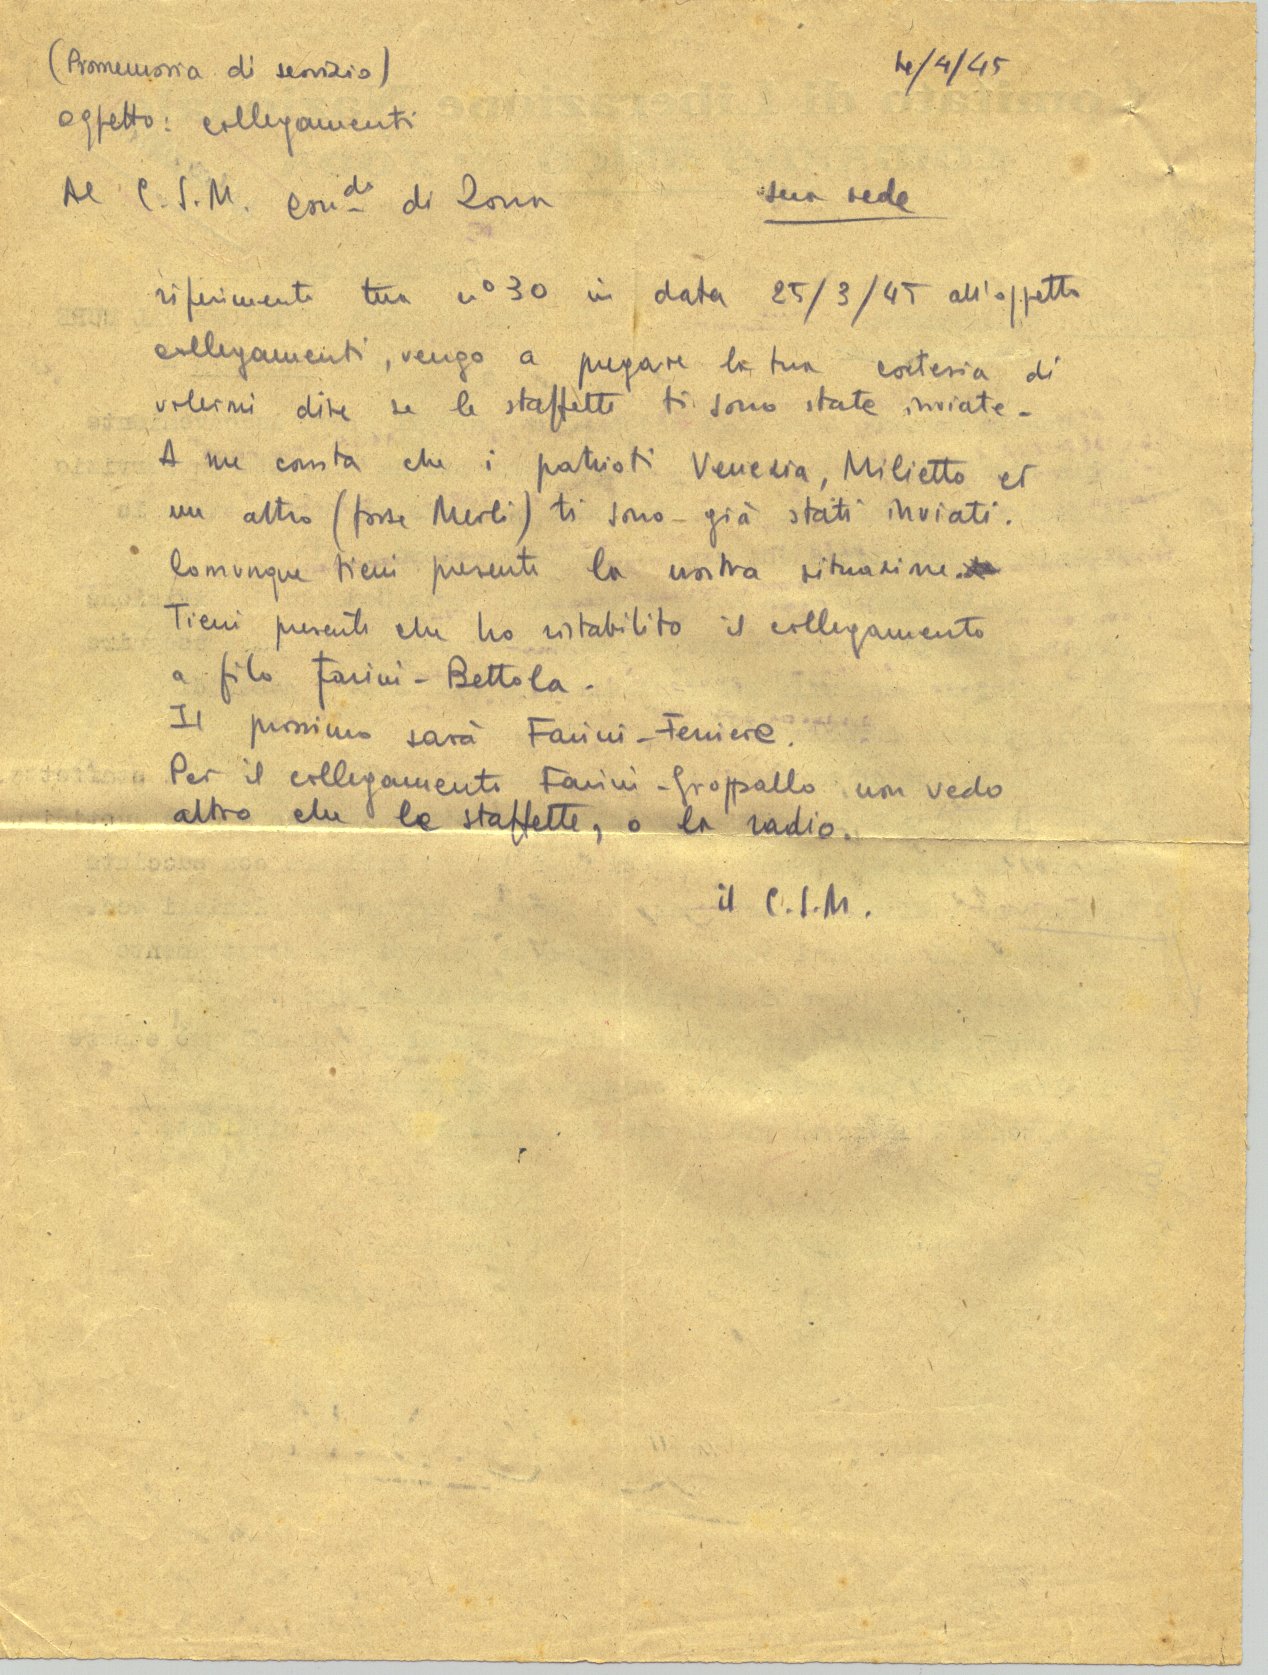 (Promemoria di servizio)
/4/45
oggetto: collegamenti
Al C.S.M. Com.do di Zona
sua sede
riferimento tua n° 30 in data 25/3/45 all'oggetto
collegamenti, vengo a pregare la tua cortesia di
volermi dire se le staffette ti sono state inviate-
A me consta che i patrioti Venezia, Milietto et
un altro (forse Merli) ti sono già stati inviati.
Comunque tieni presente la nostra situazione.
Tieni presente che ho ristabilito il collegamento
a filo Farini-Bettola-
Il prossimo sarà Farini-Ferriere.
Per il collegamento Farini-Groppallo non vedo
altro che le staffette, o la radio.
il C.S.M.